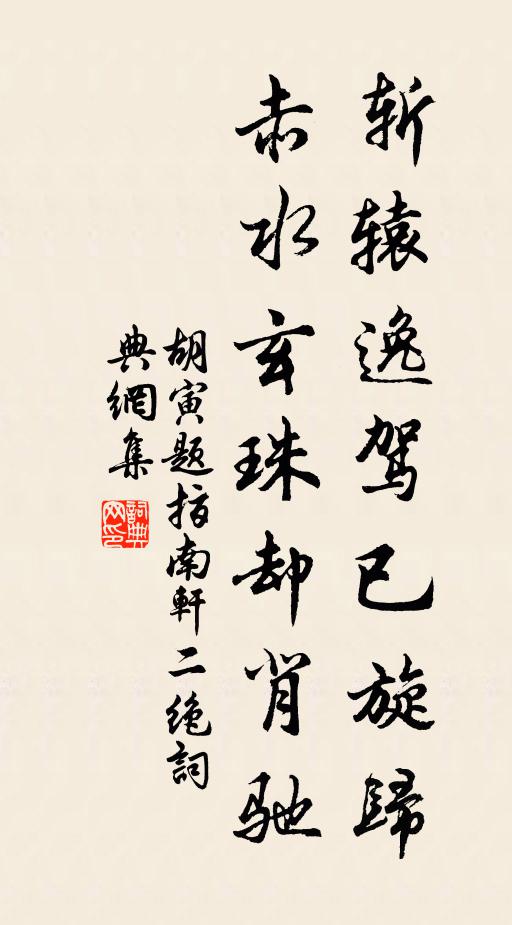 斩辕逸驾已旋歸
赤水玄珠却肖驰
胡寅题指南軒二绝詞
典網集
詞典
网印